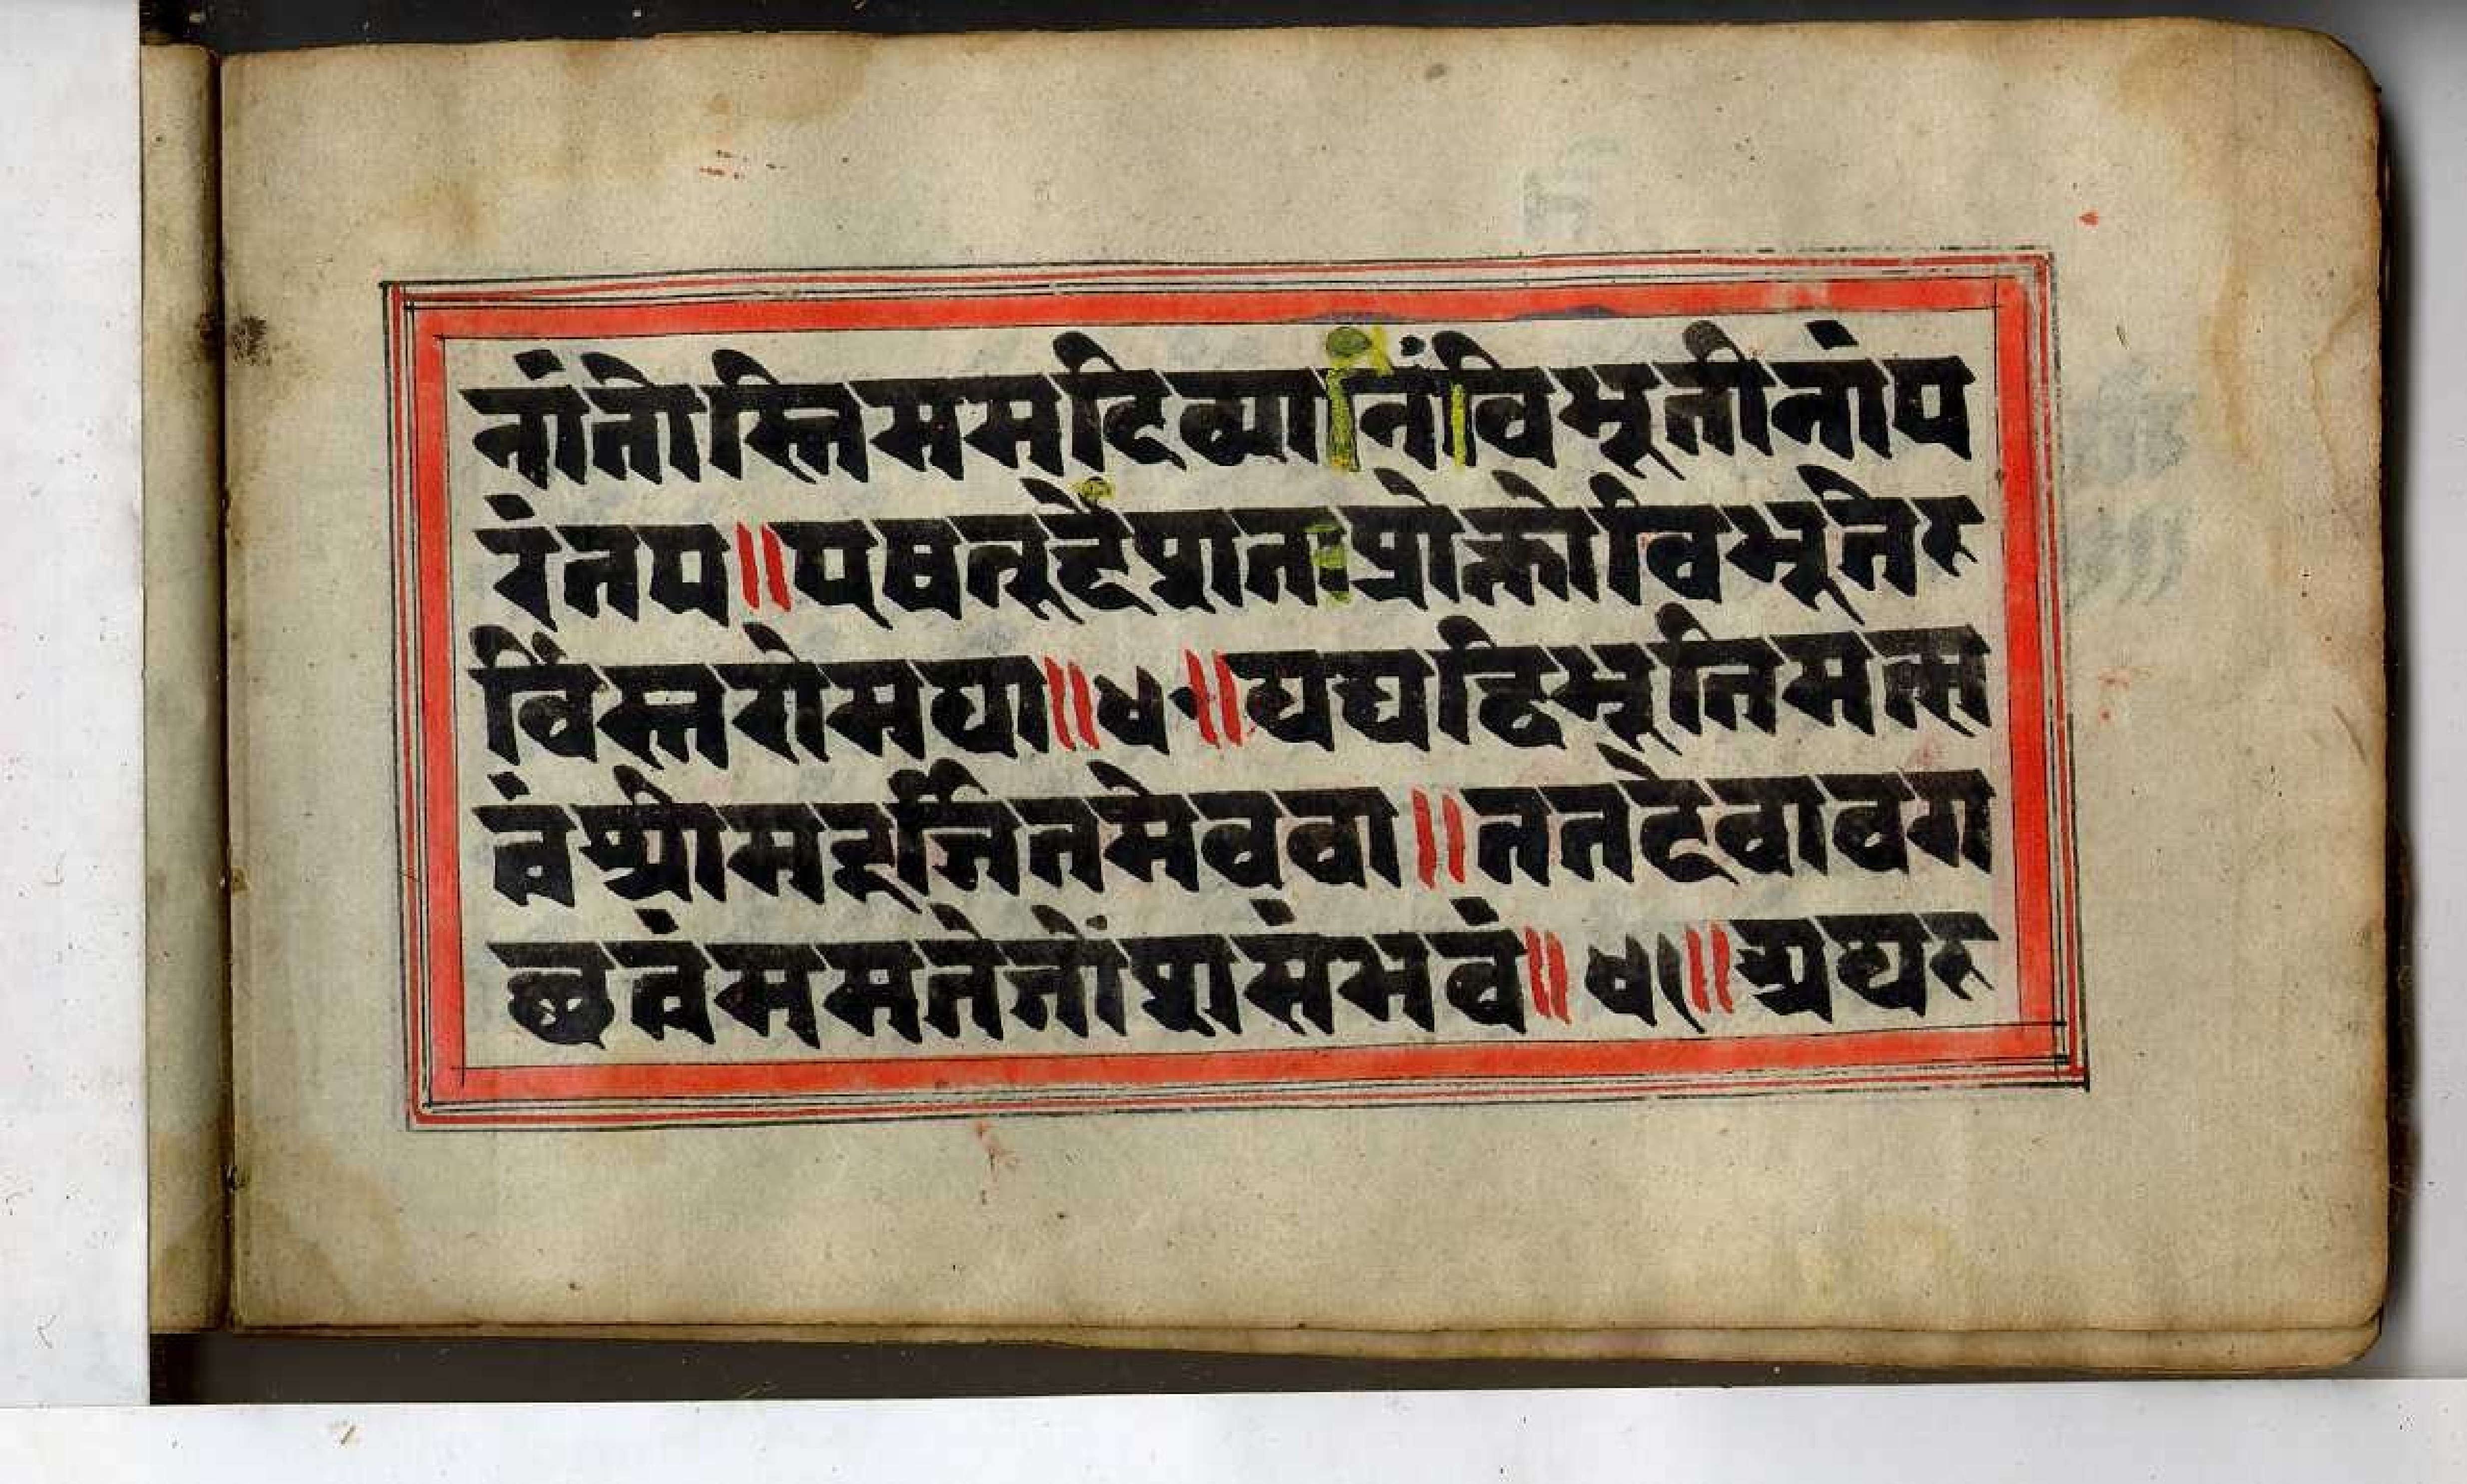 नांतोस्तिममदिव्यानांविभूतीनांप
रंतप॥एषतूद्देशतःप्रोक्तोविभूतेर
विंस्तरोमया॥४०॥यद्यद्विभूतिमत्स
त्वंश्रीमदूर्जितमेववा॥तत्तदेवावग
छत्वंममतेजोंशसंभवं॥४१॥अथवा